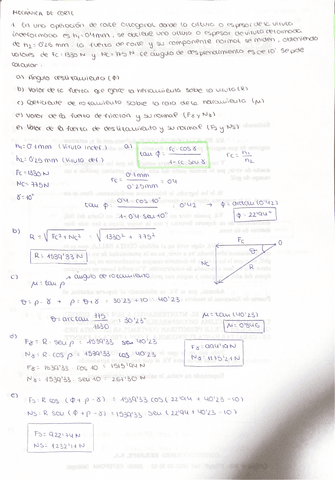 MECANICA DE CORTE
1. En una operación de corte ortogonal donde la altura o espesor de la viruta
indeformada es h₁=0'1mm, se obtiene una altura o espesor de viruta deformada
de h₂=0'25mm. La fuerza de corte y su componente normal se miden, obteniendo
valores de Fc=1330 N y Nc=775N. El ángulo de desprendimiento es de 10°. Se pide
calcular:
a) Ángulo deslizamiento (Φ)
b) Valor de la fuerza que ejerce la herramienta sobre la viruta (R)
c) Coeficiente de rozamiento sobre la cara de la herramienta (μ)
d) Valor de la fuerza de fricción y su normal (Fγ y Nγ)
e) Valor de la fuerza de deslizamiento y su normal (Fs y Ns)
h₁=0'1mm (Viruta indef.) a) tan Φ = rc · cos γ / 1 - rc · sen γ rc = h₁ / h₂
h₂=0'25mm (Viruta def.)
Fc=1330N rc = 0'1mm / 0'25mm = 0'4
Nc=775N
γ=10°
tan Φ = 0'4 · cos 10° / 1 - 0'4 · sen 10° = 0'42 → Φ = arctan (0'42)
Φ = 22'94°
b) R = √Fc² + Nc² = √1330² + 775²
R = 1539'33 N
Fc
Nc
R
c) → ángulo de rozamiento
μ = tan ρ
θ = ρ - γ → ρ = θ + γ = 30'23 + 10 = 40'23
θ = arctan 775 / 1330 = 30'23° μ = tan (40'23)
μ = 0'846
d) Fγ = R · sen ρ = 1539'33 · sen 40'23
Nγ = R · cos ρ = 1539'33 · cos 40'23
Fγ = 994'19N
Nγ = 1175'21N
e) Fs = R · cos (Φ + ρ - γ) = 1539'33 cos (22'94 + 40'23 - 10)
Ns = R · sen (Φ + ρ - γ) = 1539'33 sen (22'94 + 40'23 - 10)
Fs = 922'74N
Ns = 1232'14N